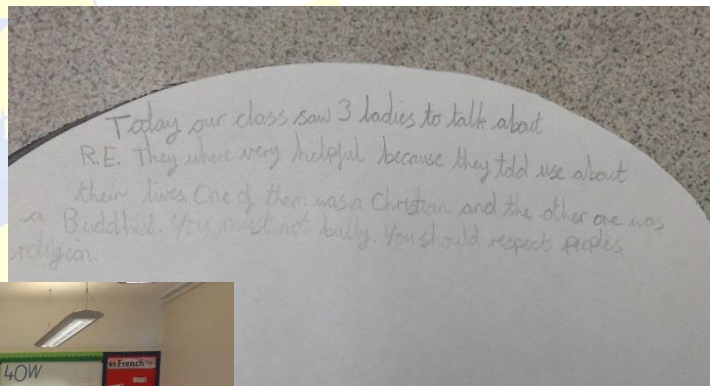 Today our class saw 3 ladies to talk about
R.E. They where very helpful because they told use about
their lives One of them was a Christian and the other one was
a Buddhist. You must not bully. You should respect peoples
religion
4OW
French